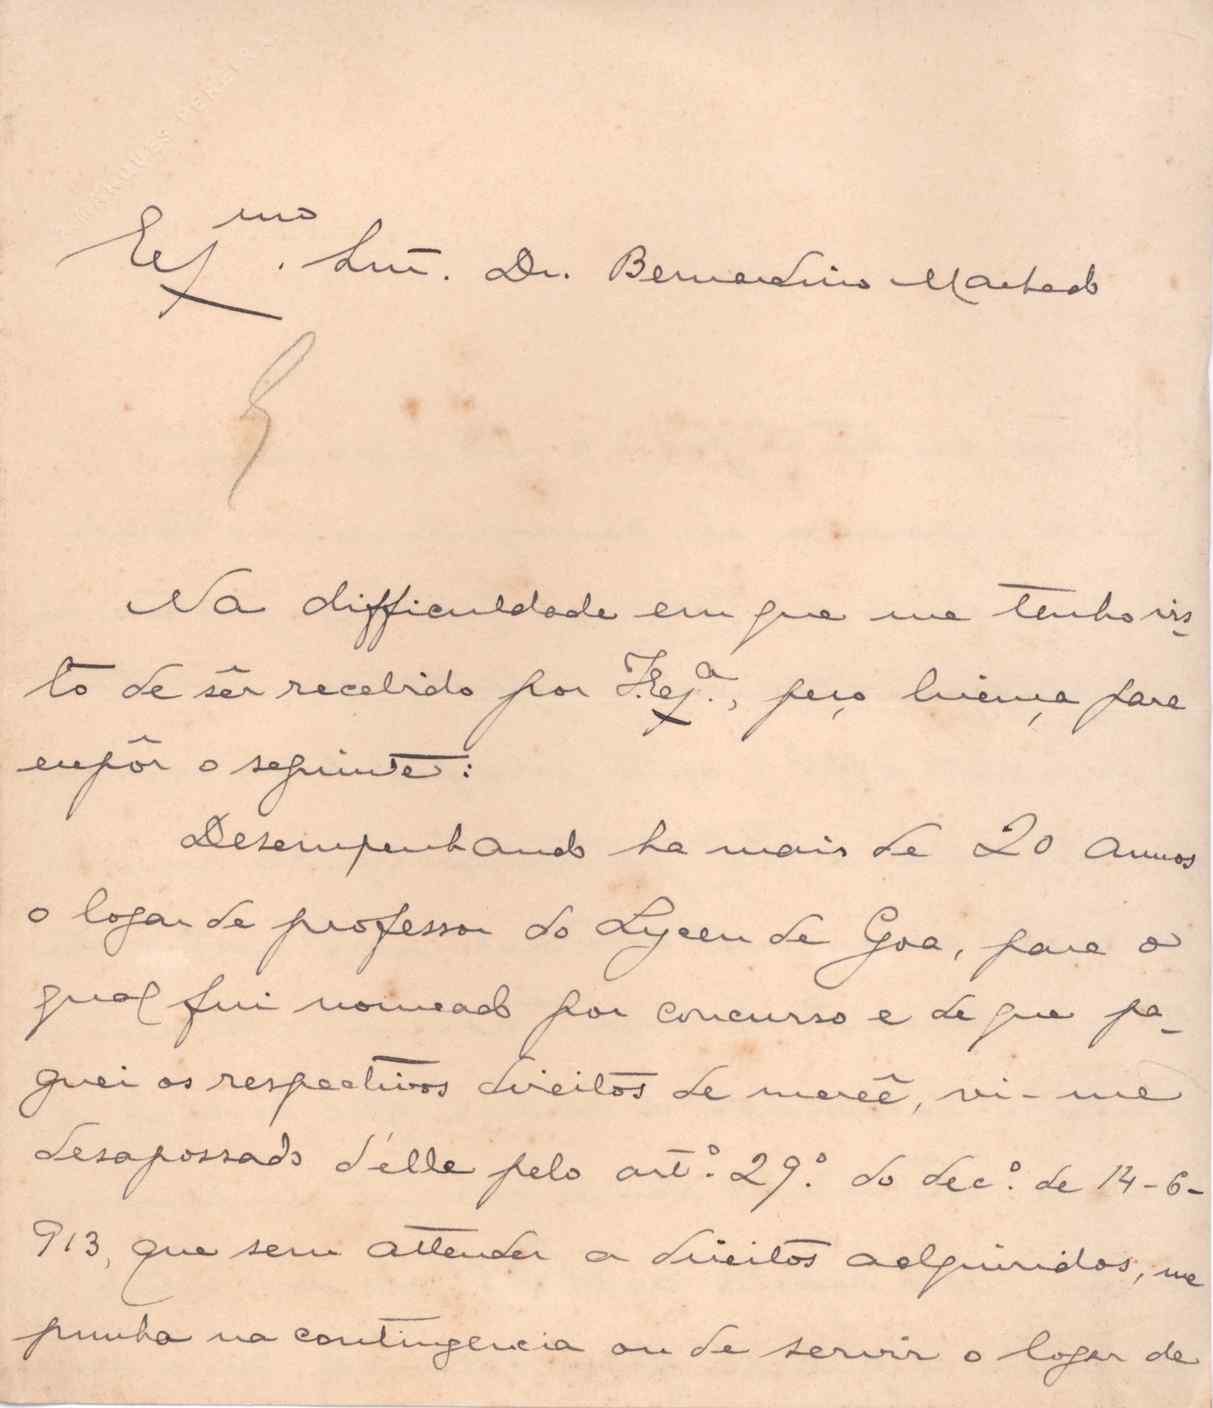 MARQUES PEREIRA
Exmo. Snr. Dr. Bernardino Machado
Na difficuldade em que me tenho vis-
to de sêr recebido por V. Exa., peço licença para
expôr o seguinte:
Desempenhando ha mais de 20 annos
o logar de professor do Lyceu de Goa, para o
qual fui nomeado por concurso e de que pa-
guei os respectivos direitos de mercê, vi-me
desapossado d'élle pelo artº. 29º. do decº. de 14-6-
913, que sem attender a direitos adquiridos, me
punha na contingencia ou de servir o logar de